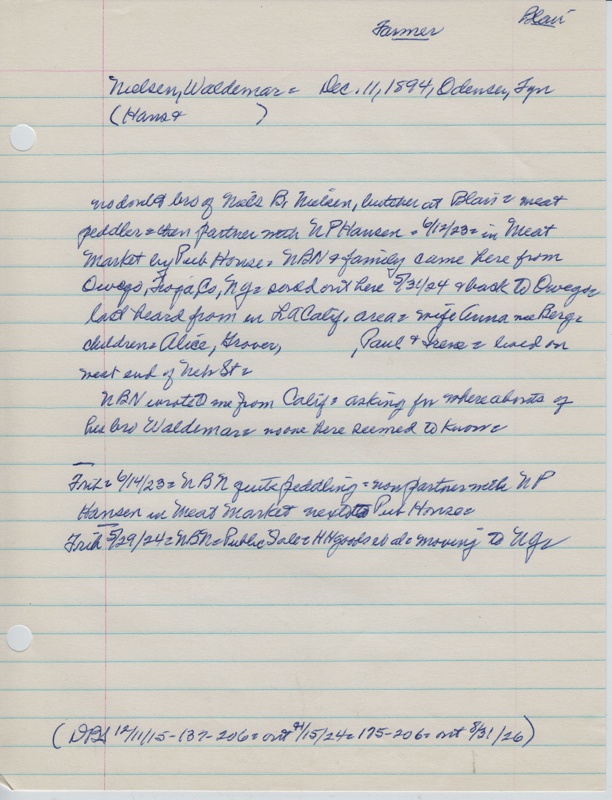 Blair
Farmer
Nielsen, Waldemar = Dec. 11, 1894, Odense, Fyn
(Hans & )
no doubt bro of Niels B. Nielsen, butcher at Blair = meat
peddler = then partner with N P Hansen = 6/12/23 = in Meat
Market by Pub House = NBN & family came here from
Owego, Tioga Co, Ny = sold out here 5/31/24 & back to Owego =
last heard from in LA Calif. area = wife Anna nee Berg =
children = Alice, Grover, , Paul & Irene = lived on
west end of Neb St =
NBN wrote to me from Calif = asking for whereabouts of
his bro Waldemar = no one here seemed to know =
Trib = 6/14/23 = N B N quits peddling = now partner with N P
Hansen in Meat Market next to Pub House =
Trib 5/29/24 = NBN = Public Sale = HHgoods = moving to Ny =
(DBS 12/11/15-137-206 = out 4/15/24 = 175-206 = out 8/31/26)